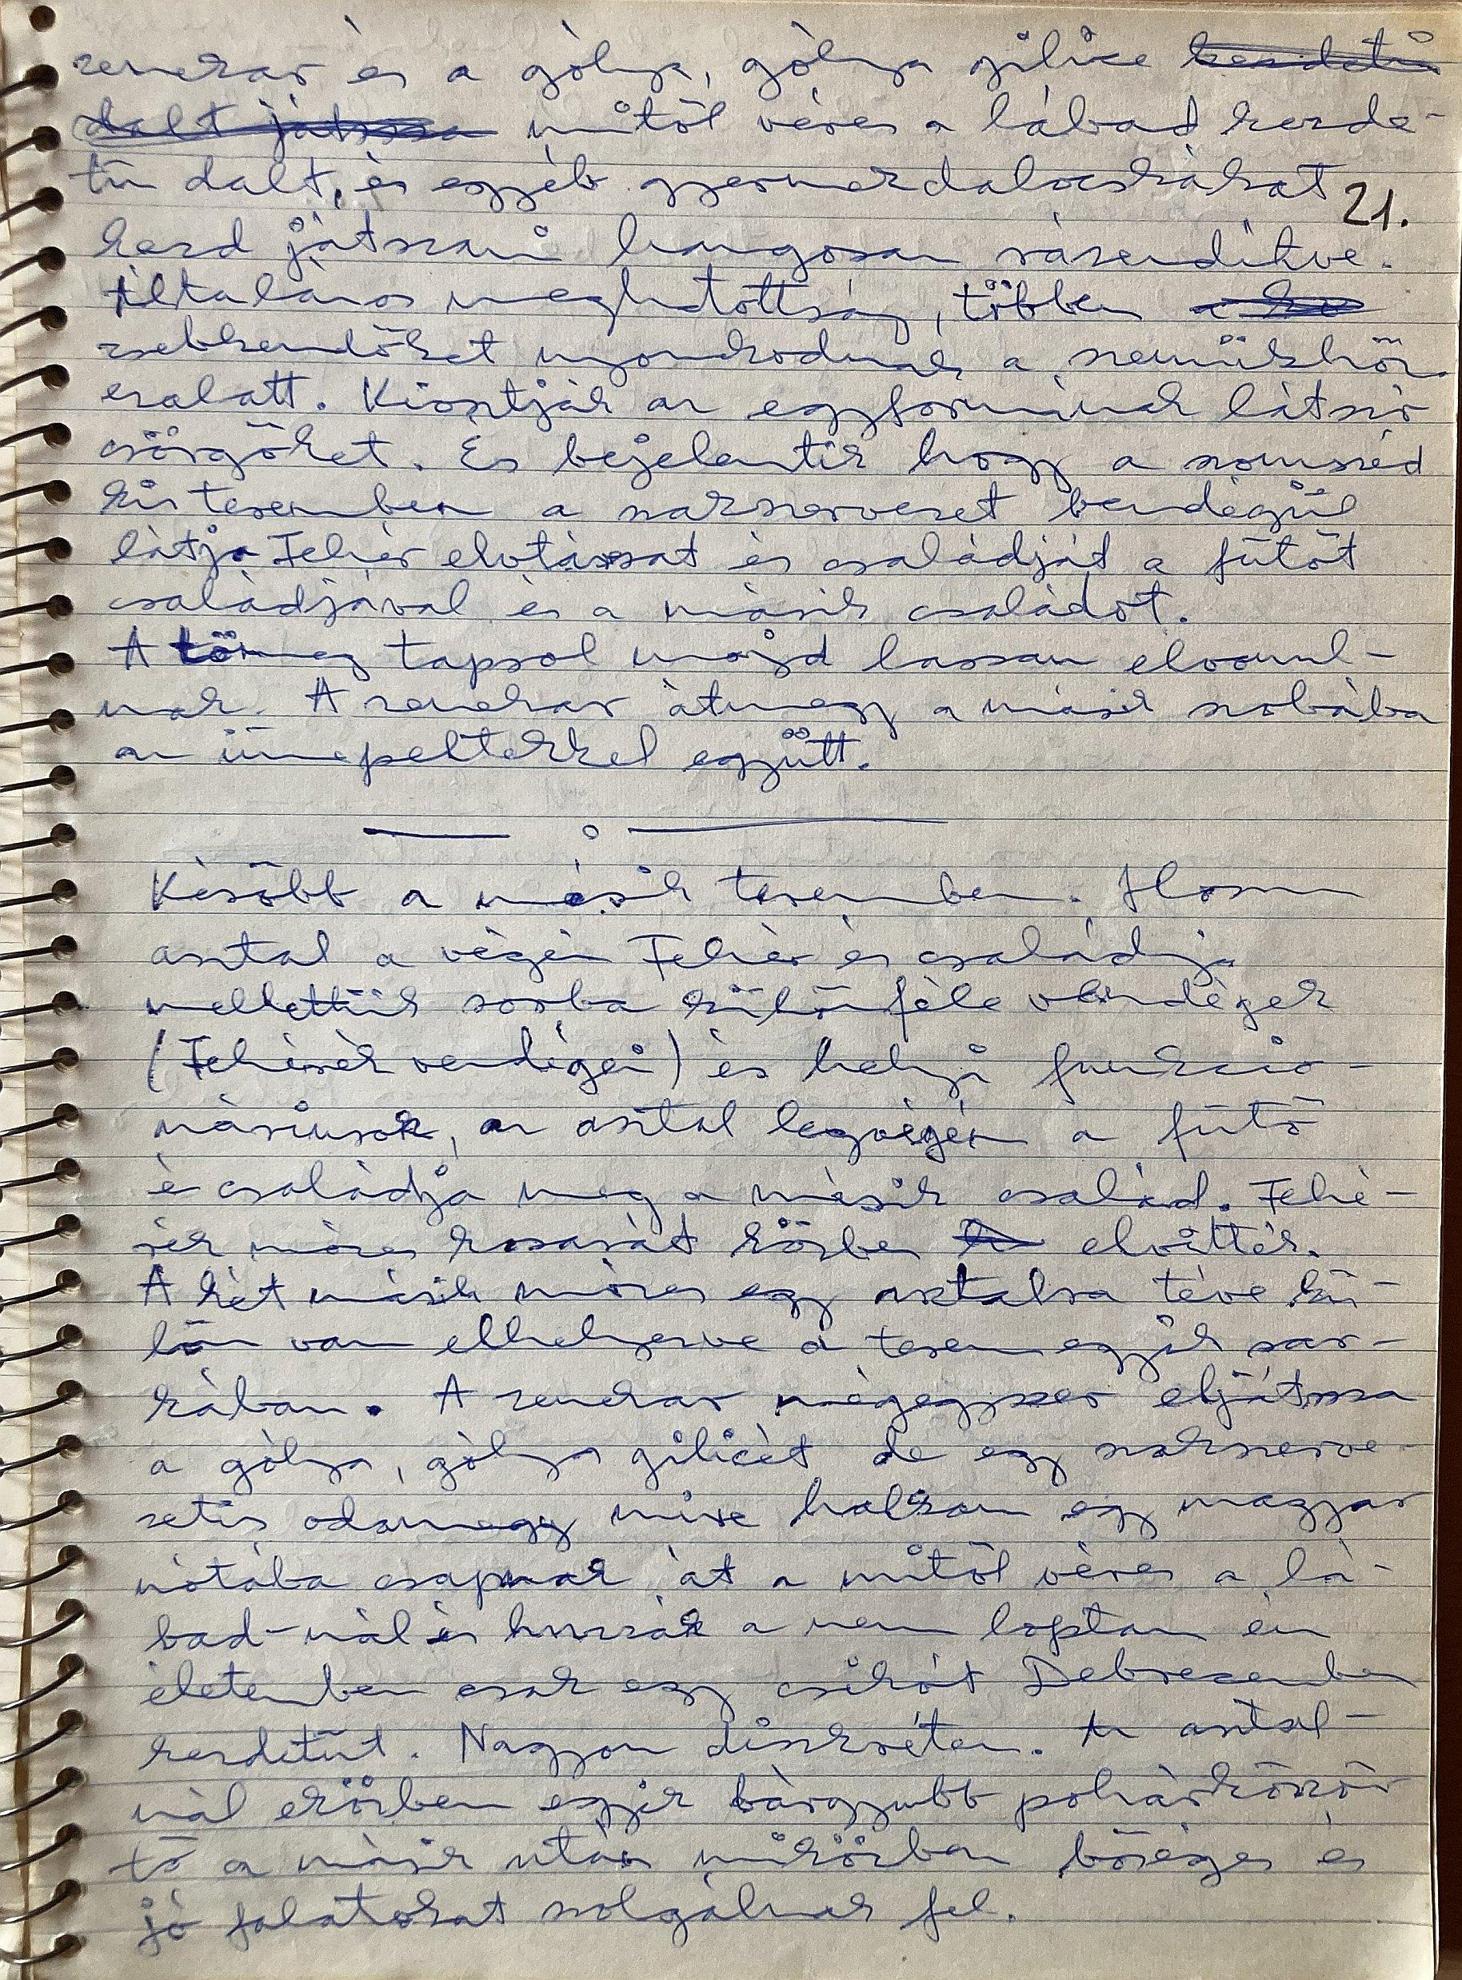 zenekar és a gólya, gólya gilice kezdetű
dalt játssza mitől véres a lábad kezde-
tű dalt, és egyéb gyermekdalocskákat
21.
kezd játszani hangosan rázendítve.
Általános meghatottság, többen
zsebkendőket nyomkodnak a szemükhöz
ezalatt. Kiosztják az egyformának látszó
csörgőket. És bejelentik hogy a szomszéd
kis teremben a szakszervezet vendégül
látja Fehér elvtársat és családját a fűtőt
családjával és a másik családot.
A tömeg tapsol majd lassan elvonul-
nak. A zenekar átmegy a másik szobába
az ünnepeltekkel együtt.
Később a másik teremben. Hosszú
asztal a végén Fehér és családja
mellettük sorba különféle vendégek
(Fehérék vendégei) és helyi funkcio-
náriusok, az asztal legvégén a fűtő
és családja meg a másik család. Fehé-
rék mózes kosarát közben elvitték.
A két másik mózes egy asztalra téve kü-
lön van elhelyezve a terem egyik sar-
kában. A zenekar mégegyszer eljátssza
a gólya, gólya gilicét de egy szakszerve-
zetis odamegy mire halkan egy magyar
nótába csapnak át a mitől véres a lá-
bad-nál és húzzák a nem loptam én
életemben csak egy csikót Debrecenben
kezdetűt. Nagyon diszkréten. Az asztal-
nál eközben egyik bárgyúbb pohárköszön-
tő a másik után miközben bőséges és
jó falatokat szolgálnak fel.